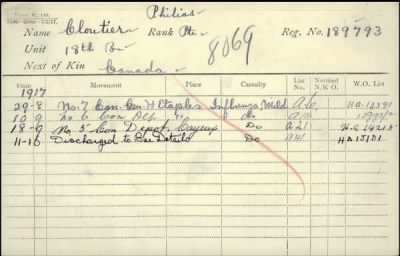 Philias
Name Cloutier Rank Pte. Reg. No. 189793
Unit 18th Bn 8069
Next of Kin Canada
Date Movement Casualty List No. Notified N.K.O. W.O. List
1917
29-8 No. 7 Can. Gen. H Etaples Influenza Mild HA 13591
10-9 No 6 Con Dep " Do
18-9 No. 5 Con Depot, Cayeux Do HA 14215
11-10 Discharged to Base Details Do HA 15101